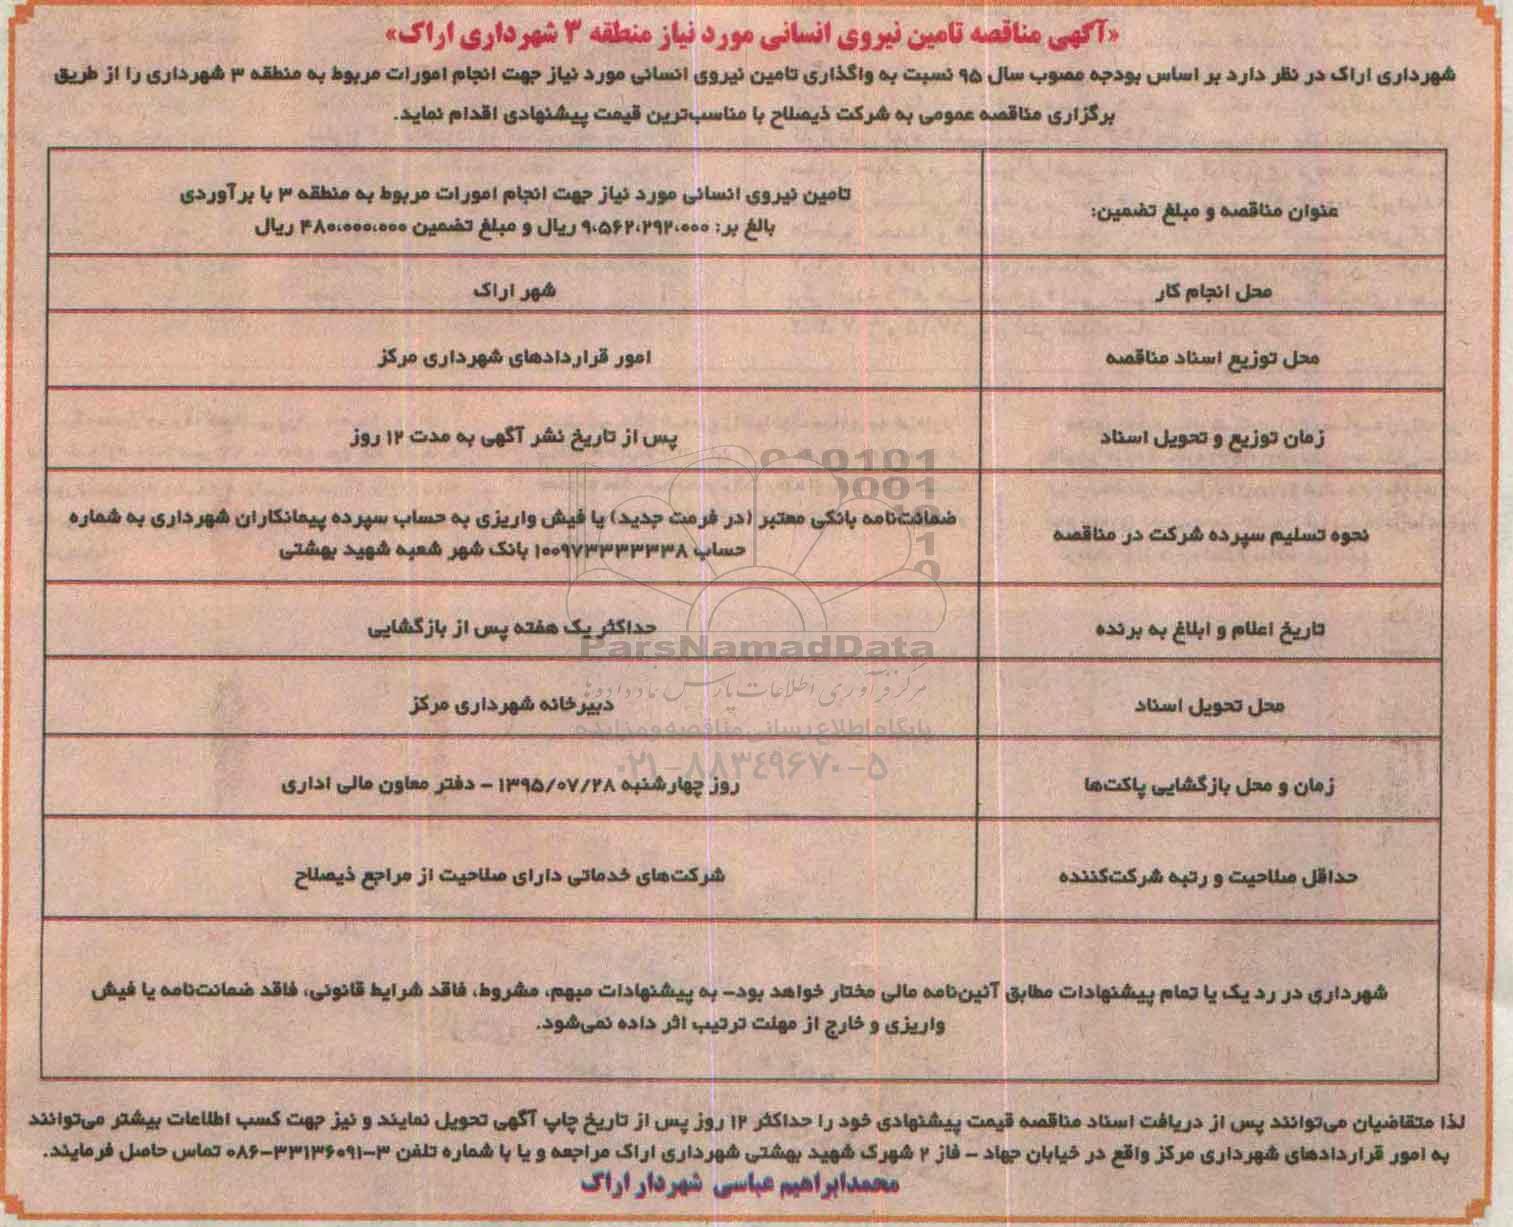 «آگهی مناقصه تامین نیروی انسانی مورد نیاز منطقه ۳ شهرداری اراک»
شهرداری اراک در نظر دارد بر اساس بودجه مصوب سال ۹۵ نسبت به واگذاری تامین نیروی انسانی مورد نیاز جهت انجام امورات مربوط به منطقه ۳ شهرداری را از طریق
برگزاری مناقصه عمومی به شرکت ذیصلاح با مناسب‌ترین قیمت پیشنهادی اقدام نماید.
عنوان مناقصه و مبلغ تضمین:
تامین نیروی انسانی مورد نیاز جهت انجام امورات مربوط به منطقه ۳ با برآوردی
بالغ بر: ۹،۵۶۲،۲۹۲،۰۰۰ ریال و مبلغ تضمین ۴۸۰،۰۰۰،۰۰۰ ریال
محل انجام کار
شهر اراک
محل توزیع اسناد مناقصه
امور قراردادهای شهرداری مرکز
زمان توزیع و تحویل اسناد
پس از تاریخ نشر آگهی به مدت ۱۲ روز
نحوه تسلیم سپرده شرکت در مناقصه
ضمانت‌نامه بانکی معتبر (در فرمت جدید) یا فیش واریزی به حساب سپرده پیمانکاران شهرداری به شماره
حساب ۱۰۰۹۷۳۳۳۳۳۳۸ بانک شهر شعبه شهید بهشتی
تاریخ اعلام و ابلاغ به برنده
حداکثر یک هفته پس از بازگشایی
ParsNamadData
مرکز فرآوری اطلاعات پارس نماد داده‌ها
محل تحویل اسناد
دبیرخانه شهرداری مرکز
پایگاه اطلاع رسانی مناقصه و مزایده
۰۲۱-۸۸۳۴۹۶۷۰-۵
زمان و محل بازگشایی پاکت‌ها
روز چهارشنبه ۱۳۹۵/۰۷/۲۸ - دفتر معاون مالی اداری
حداقل صلاحیت و رتبه شرکت‌کننده
شرکت‌های خدماتی دارای صلاحیت از مراجع ذیصلاح
شهرداری در رد یک یا تمام پیشنهادات مطابق آئین‌نامه مالی مختار خواهد بود- به پیشنهادات مبهم، مشروط، فاقد شرایط قانونی، فاقد ضمانت‌نامه یا فیش
واریزی و خارج از مهلت ترتیب اثر داده نمی‌شود.
لذا متقاضیان می‌توانند پس از دریافت اسناد مناقصه قیمت پیشنهادی خود را حداکثر ۱۲ روز پس از تاریخ چاپ آگهی تحویل نمایند و نیز جهت کسب اطلاعات بیشتر می‌توانند
به امور قراردادهای شهرداری مرکز واقع در خیابان جهاد - فاز ۲ شهرک شهید بهشتی شهرداری اراک مراجعه و یا با شماره تلفن ۳-۳۳۱۳۶۰۹۱-۰۸۶ تماس حاصل فرمایند.
محمدابراهیم عباسی شهردار اراک